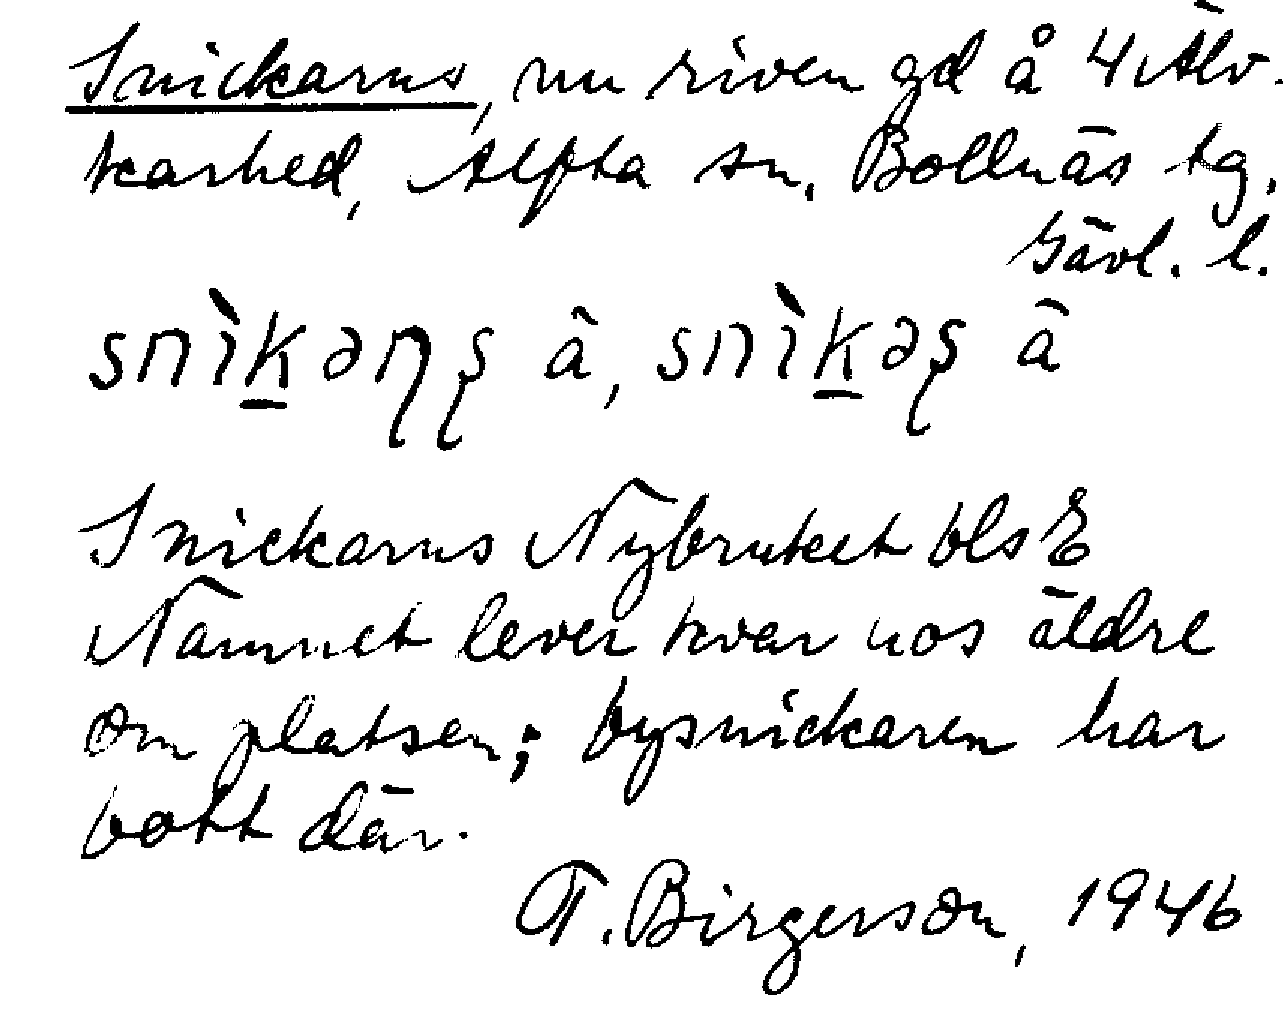 Snickarns, nu riven gd å 4 Älv-
karhed, Alfta sn, Bollnäs tg.
Gävl. l.
snìk̲əɳʂ ā, snìk̲əʂ ā
Snickarns Nybruket bls E
Namnet lever kvar hos äldre
om platsen; bysnickaren har
bott där.
T. Birgerson, 1946